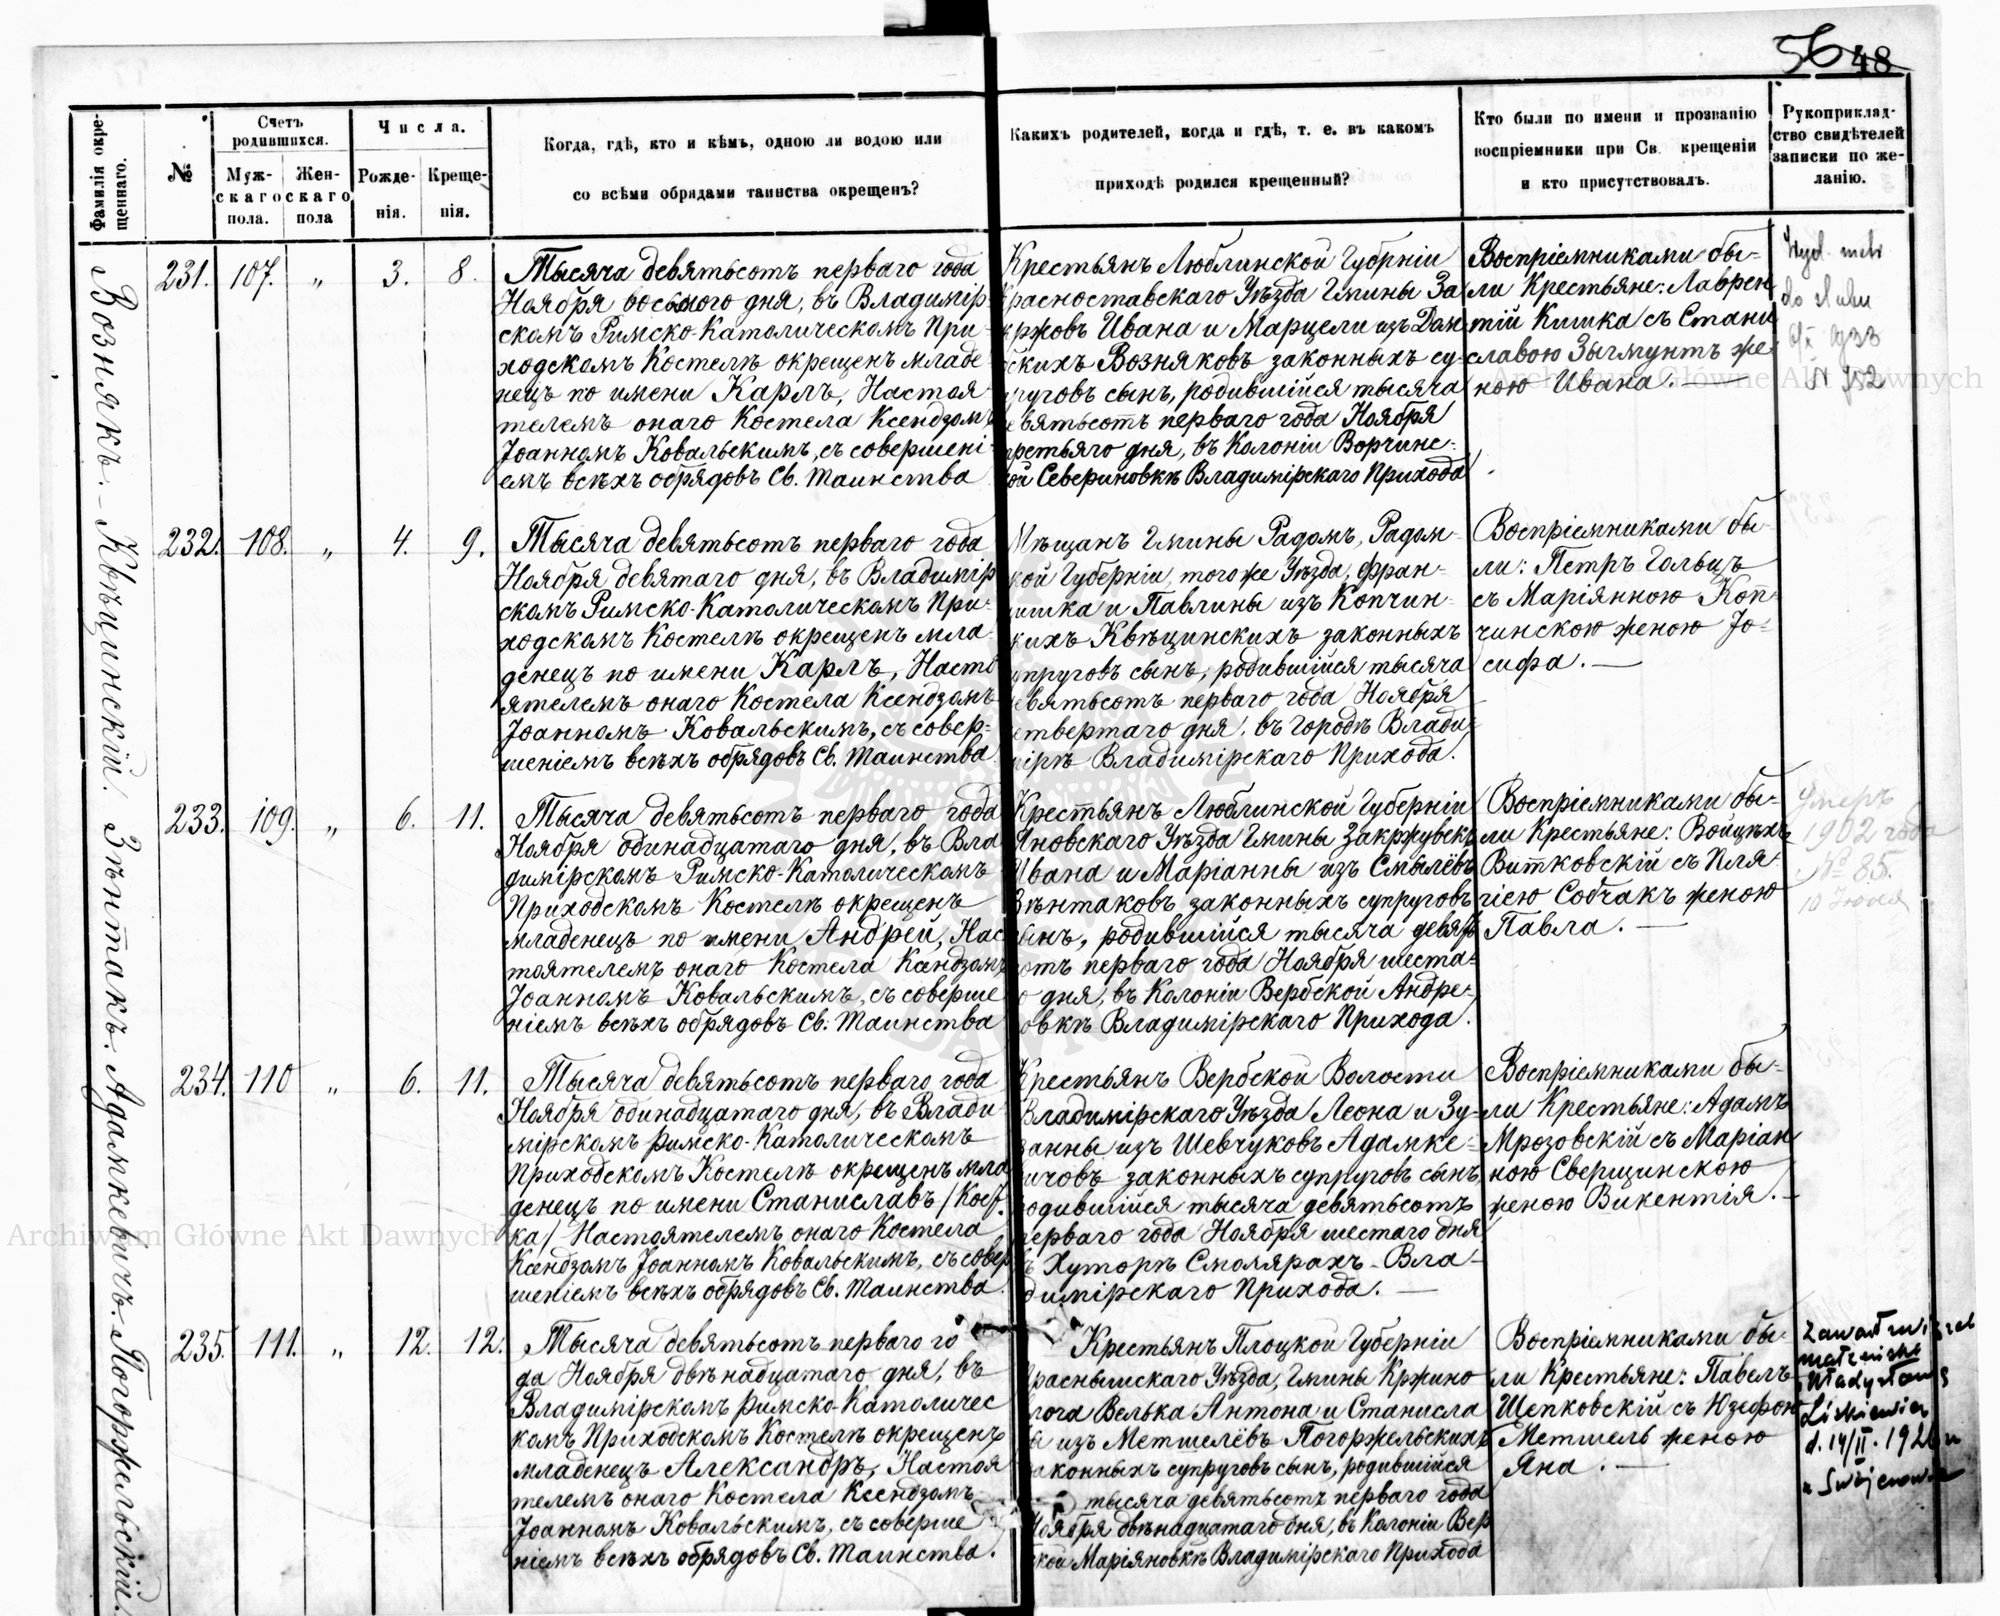 56 48
Фамилія окрещеннаго.
№
Счетъ родившихся.
Мужскаго пола.
Женскаго пола
Числа.
Рожденія.
Крещенія.
Когда, гдѣ, кто и кѣмъ, одною ли водою или
со всѣми обрядами таинства окрещенъ?
Какихъ родителей, когда и гдѣ, т. е. въ какомъ
приходѣ родился крещенный?
Кто были по имени и прозванію
воспріемники при Св. крещеніи
и кто присутствовалъ.
Рукоприклад-
ство свидѣтелей
записки по же-
ланію.
Вознякъ. - Квѣцинскій. Зѣнтакъ. Адамкевичъ. Погоржельскій.
231. 107. „ 3. 8.
Тысяча девятьсотъ перваго года
Ноября восьмого дня, въ Владимір
скомъ Римско-Католическомъ При-
ходскомъ Костелѣ окрещенъ младе
нецъ по имени Карлъ, Настоя
телемъ онаго Костела Ксендзомъ
Іоанномъ Ковальскимъ, съ совершені-
емъ всѣхъ обрядовъ Св. Таинства
Крестьянъ Люблинской Губрніи
Красноставскаго Уѣзда Гмины За
кржовъ Ивана и Марцели изъ Дам
скихъ Возняковъ законныхъ су-
пруговъ сынъ, родившійся тысяча
девятьсотъ перваго года Ноября
третьяго дня, въ Колоніи Ворчинс-
кой Севериновкѣ Владимірскаго Прихода
Воспріемниками бы-
ли Крестьяне: Лаврен
тій Кишка съ Стани
славою Зыгмунтъ же
ною Ивана. —
Wyd. metr
do
N 952
232. 108. „ 4. 9.
Тысяча девятьсотъ перваго года
Ноября девятаго дня, въ Владимір
скомъ Римско-Католическомъ При-
ходскомъ Костелѣ окрещенъ мла
денецъ по имени Карлъ, Насто
ятелемъ онаго Костела Ксендзомъ
Іоанномъ Ковальскимъ, съ совер-
шеніемъ всѣхъ обрядовъ Св. Таинства
Мѣщанъ Гмины Радомъ, Радом-
кой Губерніи, того же Уѣзда, Фран-
цишка и Павлины изъ Копчин-
скихъ Квѣцинскихъ законныхъ
супруговъ сынъ, родившійся тысяча
девятьсотъ перваго года Ноября
четвертаго дня, въ городѣ Влади-
мірѣ Владимірскаго Прихода.
Воспріемниками бы-
ли: Петръ Гольцъ
съ Маріянною Коп-
чинскою женою Іо-
сифа. —
233. 109. „ 6. 11.
Тысяча девятьсотъ перваго года
Ноября одинадцатаго дня, въ Вла
димірскомъ Римско-Католическомъ
Приходскомъ Костелѣ окрещенъ
младенецъ по имени Андрей, Нас
тоятелемъ онаго Костела Ксендзомъ
Іоанномъ Ковальскимъ, съ соверше
ніемъ всѣхъ обрядовъ Св. Таинства
Крестьянъ Люблинской Губерніи
Яновскаго Уѣзда Гмины Закржувекъ
Ивана и Маріанны изъ Смылёвъ
Зѣнтаковъ законныхъ супруговъ
сынъ, родившійся тысяча девять
сотъ перваго года Ноября шеста-
го дня, въ Колоніи Вербской Андре-
евкѣ Владимірскаго Прихода.
Воспріемниками бы-
ли Крестьяне: Войцѣхъ
Витковскій съ Пля-
гіею Собчакъ женою
Павла. —
Умеръ
1902 года
№ 85.
10 Іюля
234. 110 „ 6. 11.
Тысяча девятьсотъ перваго года
Ноября одинадцатаго дня, въ Влади
мірскомъ Римско-Католическомъ
Приходскомъ Костелѣ окрещенъ мла
денецъ по имени Станиславъ /Кост-
ка/ Настоятелемъ онаго Костела
Ксендзомъ Іоанномъ Ковальскимъ, съ совер
шеніемъ всѣхъ обрядовъ Св. Таинства.
Крестьянъ Вербской Волости
Владимірскаго Уѣзда Леона и Зу-
занны изъ Шевчуковъ Адамке-
вичовъ законныхъ супруговъ сынъ,
родившійся тысяча девятьсотъ
перваго года Ноября шестаго дня
въ Хуторѣ Смолярахъ - Вла-
димірскаго Прихода. —
Воспріемниками бы-
ли Крестьяне: Адамъ
Мрозовскій съ Маріан
ною Сверщинскою
женою Викентія. -
235. 111. „ 12. 12.
Тысяча девятьсотъ перваго го
да Ноября двѣнадцатаго дня, въ
Владимірскомъ Римско-Католичес
комъ Приходскомъ Костелѣ окрещенъ
младенецъ Александръ, Настоя
телемъ онаго Костела Ксендзомъ
Іоанномъ Ковальскимъ, съ соверше
ніемъ всѣхъ обрядовъ Св. Таинства.
Крестьянъ Плоцкой Губерніи
Праснышскаго Уѣзда, Гмины Кржино
влога Велька Антона и Станисла
вы изъ Метшелёвъ Погоржельскихъ
законныхъ супруговъ сынъ, родившійся
тысяча девятьсотъ перваго года
Ноября двѣнадцатаго дня, въ Колоніи Вер
ской Маріяновкѣ Владимірскаго Прихода
Воспріемниками бы-
ли Крестьяне: Павелъ
Щепковскій съ Юзефою
Метшель женою
Яна. —
Zawarł związek
małżeński
Władysławą
Liskiewicz
d. 14/II. 192
w
Archiwum Główne Akt Dawnych
Archiwum Główne Akt Dawnych